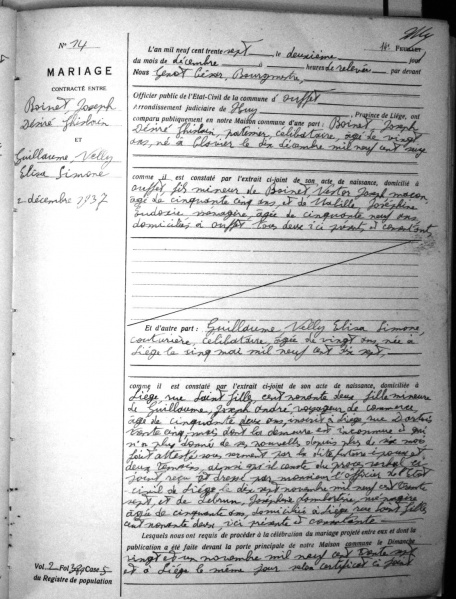 N° 14
11e FEUILLET
MARIAGE
CONTRACTÉ ENTRE
Boinet Joseph
Désiré Ghislain
ET
Guillaume Velly
Elisa Simone
2 décembre 1937
L'an mil neuf cent trente sept, le deuxième jour
du mois de décembre à heures de relevée, par devant
Nous Genot César, Bourgmestre,
Officier public de l'Etat-Civil de la commune d'Ouffet
Arrondissement judiciaire de Huy, Province de Liége, ont
comparu publiquement en notre Maison commune d'une part : Boinet Joseph
Désiré Ghislain, célibataire, âgé de vingt
ans, né à le dix décembre mil neuf cent
comme il est constaté par l'extrait ci-joint de son acte de naissance, domicilié à
Ouffet, fils mineur de Boinet Victor Joseph maçon
âgé de cinquante cinq ans, et de Joséphine
Eudoxie ménagère, âgée de cinquante neuf ans
domiciliés à Ouffet tous deux ici présents et consentants
Et d'autre part : Guillaume, Velly Elisa Simone,
couturière, célibataire, âgée de vingt ans, née à
Liége le cinq mai mil neuf cent dix sept,
comme il est constaté par l'extrait ci-joint de son acte de naissance, domiciliée à
Liége rue Saint Gilles cent nonante deux, fille mineure
de Guillaume, Joseph André, voyageur de commerce,
âgé de cinquante deux ans, inscrit à Liége rue
vente cinq, mais dont la demeure est inconnue et qui
n'a plus donné de ses nouvelles depuis plus de six mois
fait attesté sous serment par la dite future épouse et
deux témoins, ainsi qu'il conste du procès verbal ci-
joint reçu et dressé par monsieur l'officier de l'état
civil de Liége le dix sept novembre mil neuf cent trente
sept, et de Lebrun, Joséphine Lambertine, ménagère
âgée de cinquante ans, domiciliée à Liége rue Saint Gilles
cent nonante deux, ici présente et consentante
Lesquels nous ont requis de procéder à la célébration du mariage projeté entre eux et dont la
publication a été faite devant la porte principale de notre Maison commune le Dimanche
vingt et un novembre mil neuf cent trente sept
et à Liége le même jour selon certificat ci joint
Vol. 2 Fol. Case 5
du Registre de population